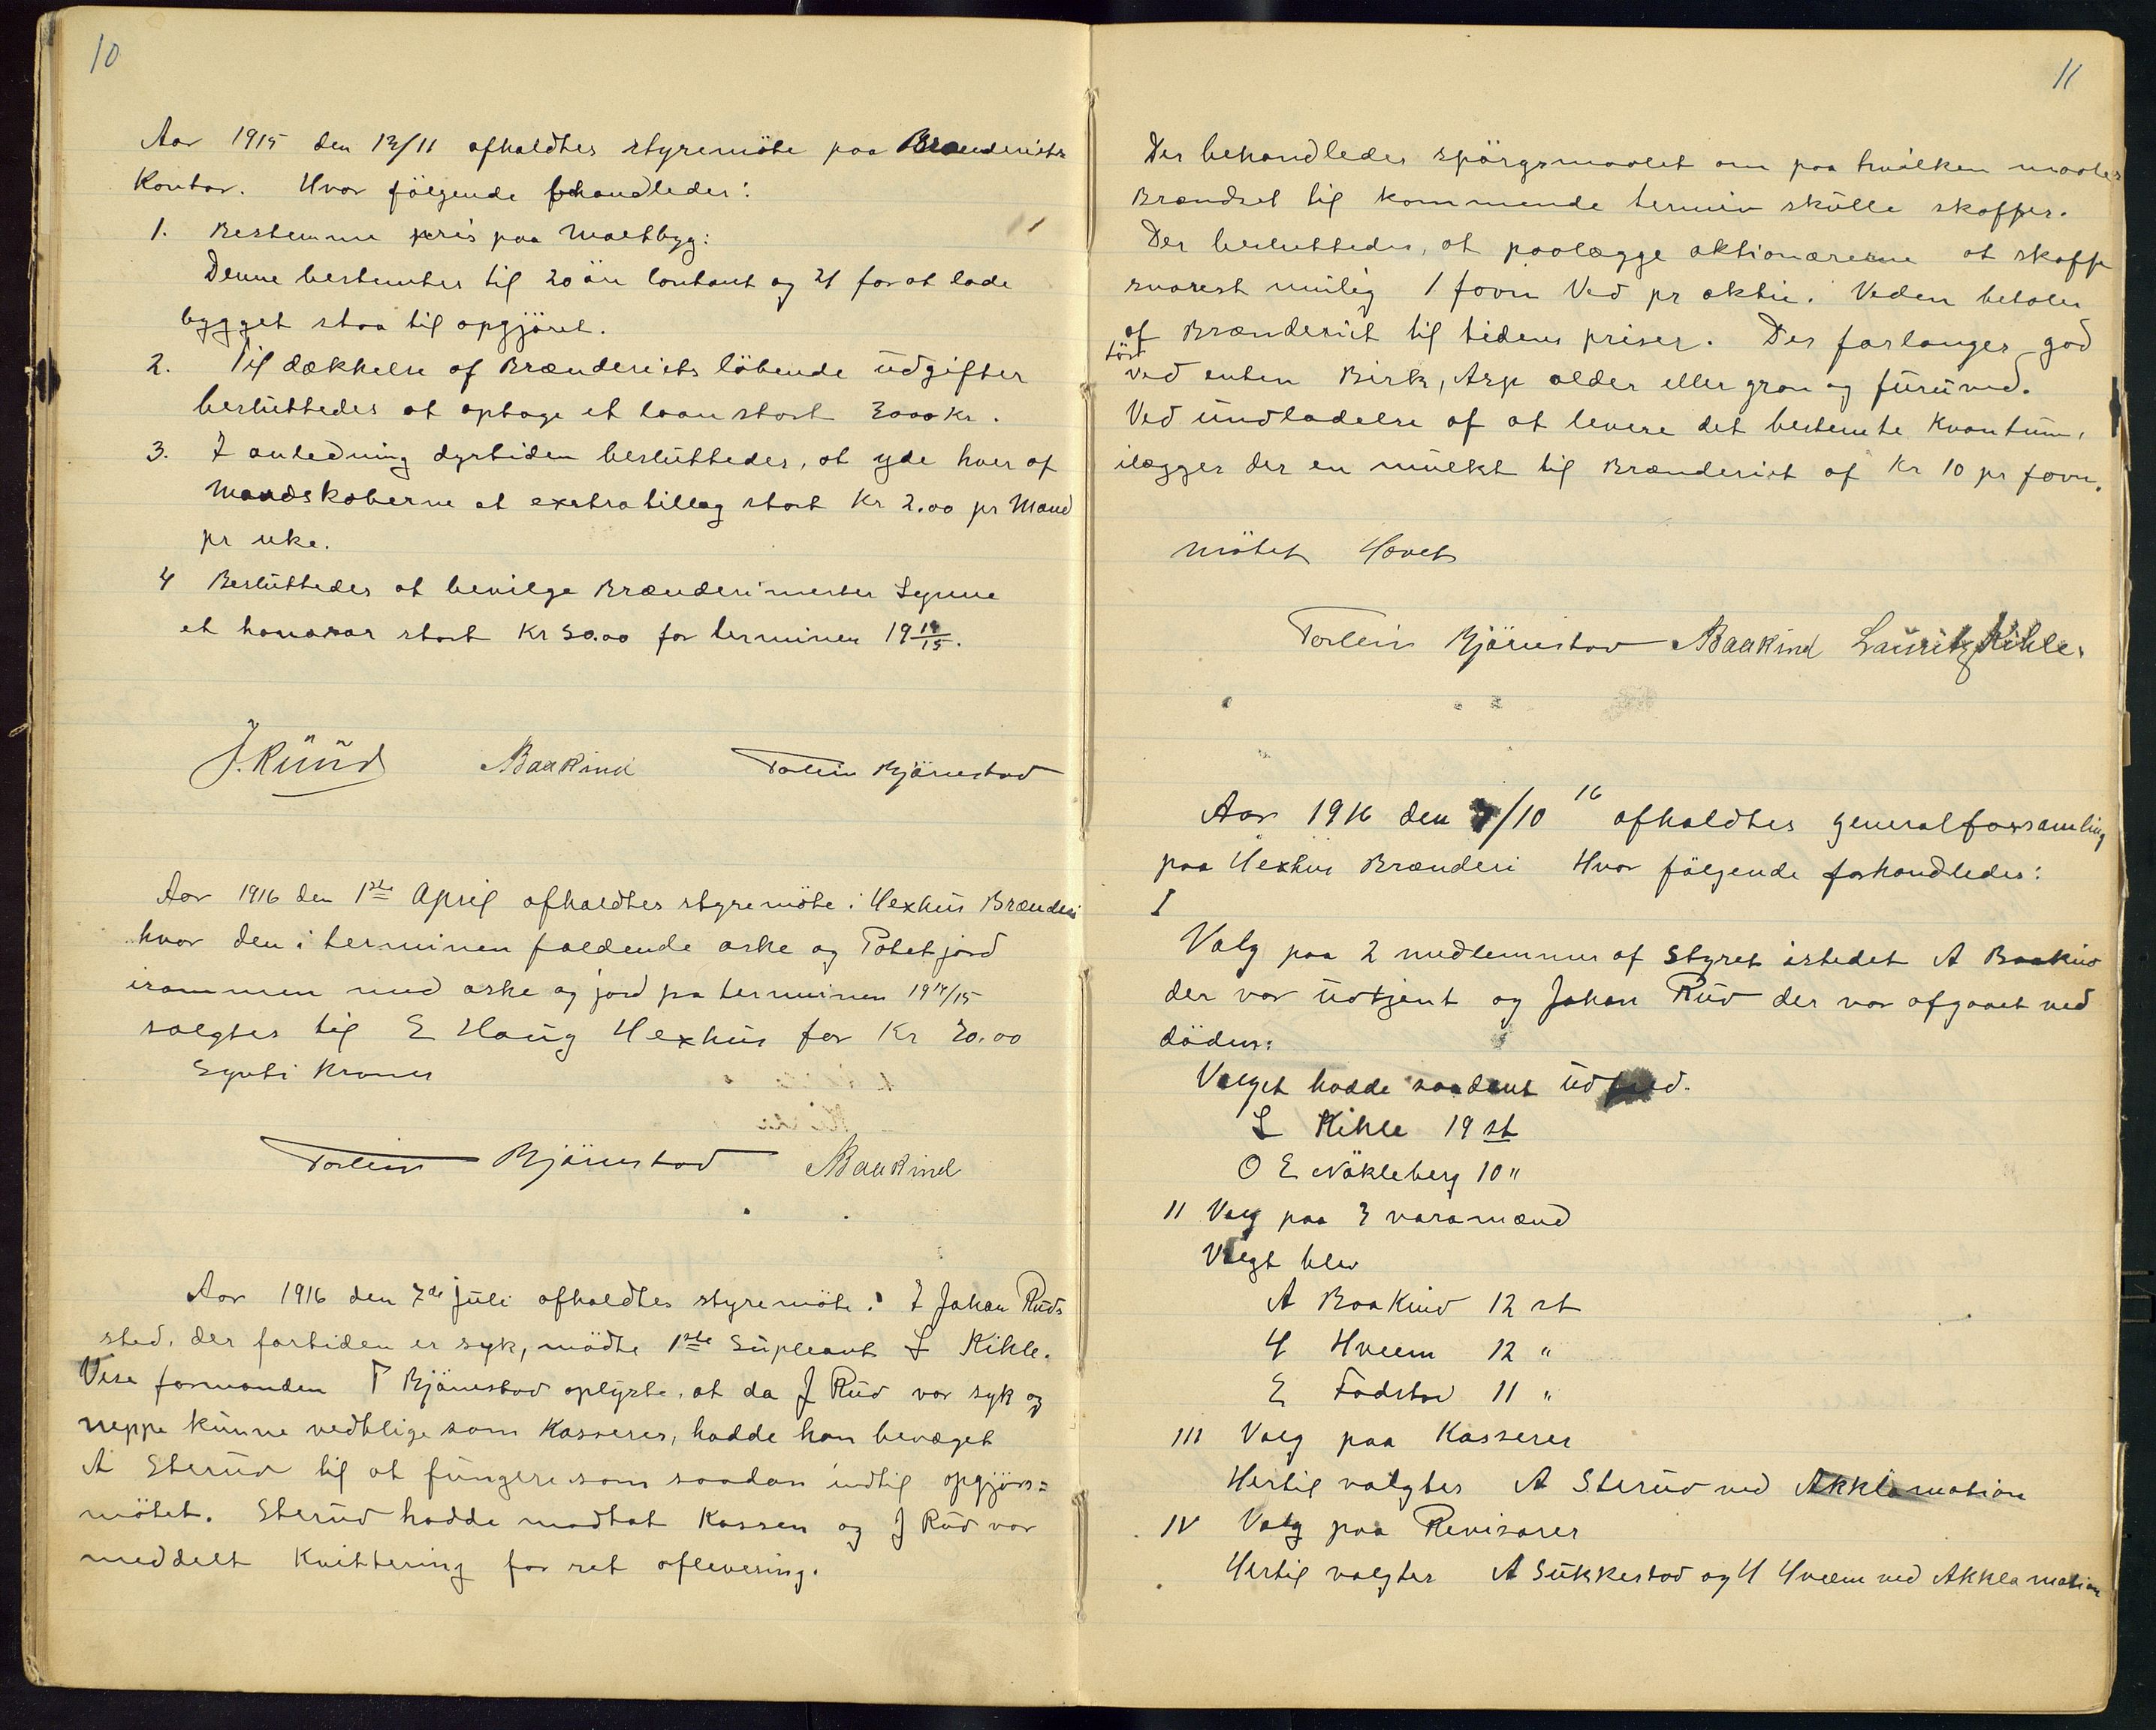 10
Aar 1915 den 13/11 afholdtes styremöte paa Brænderiets
Kontor. Hvor fölgende behandledes:
1. Bestemme pris paa Maltbyg:
Denne bestemtes til 20 öre contant og 21 for at lade
bygget staa til opgjöret.
2. Til dækkelse af Brænderiets löbende udgifter
besluttedes at optage et laan stort 3000 Kr.
3. I anledning dyrtiden besluttedes, at yde hver af
Mandskaberne et exstra tillæg stort Kr 2.00 pr Mand
pr uke.
4 Besluttedes at bevilge Brænderimester Lynne
et honorar stort Kr 50.00 for terminen 19 14/15.
J. Ruud ABaakind Torlein Björnstad
Aar 1916 den 1ste April afholdtes styremöte i Hexhus Brænderi
hvor den i terminen faldende aske og Potetjord
isammen med aske og jord fra terminen 1914/15
solgtes til E Haug Hexhus for Kr 30.00
Torlein Björnstad ABaakind
Aar 1916 den 7de juli afholdtes styremöte: I Johan Ruds
sted, der fortiden er syk, mödte 1ste Supleant L Kihle.
Vise formanden T Björnstad oplyste, at da J Rud var syk og
neppe kunne vedblige som Kasserer, hadde han bevæget
A Sterud til at fungere som saadan indtil opgjörs=
mötet. Sterud hadde modtat Kassen og J Rud var
meddelt Kvittering for ret aflevering.
11
Der behandledes spörgsmaalet om paa hvilken maate
Brændsel til kommende termin skulle skaffes.
Der besluttedes, at paalægge aktionærerne at skaffe
snarest mulig 1 favn Ved pr aktie. Veden betales
af Brænderiet til tidens priser. Der forlanges god
tör
ved enten Birk, Asp older eller gran og furuved.
Ved undladelse af at levere det bestemte Kvantum,
ilægges der en mulkt til Brænderiet af Kr 10 pr favn.
mötet Hævet
Torlein Björnstad ABaakind Lauritz Kihle.
Aar 1916 den 7/10 16 afholdtes generalforsamling
paa Hexhus Brænderi Hvor fölgende forhandledes:
I
Valg paa 2 medlemmer af styret istedet A Baakind
der var udtjent og Johan Rud der var afgaaet ved
döden:
Valget hadde saadant udfald.
L Kihle 19 st
O E Nökleberg 10 "
II Valg paa 3 varamænd
Valgt blev
A Baakind 12 st
H Hveem 12 "
E Fodstad 11 "
III Valg paa Kasserer
Hertil valgtes A Sterud ved Akklamation
IV Valg paa Revisorer
Hertil valgtes A Sukkestad og H Hveem ved Akklamation